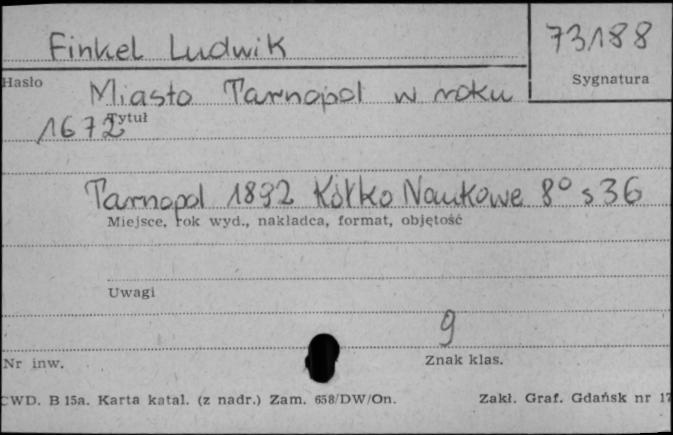 Finkel Ludwik
73188
Hasło
Sygnatura
Miasto Tarnopol w roku
1672
Tytuł
Tarnopol 1892 Kółko Naukowe 8° s 36
Miejsce, rok wyd., nakładca, format, objętość
Uwagi
9
Nr inw.
Znak klas.
CWD. B 15a. Karta katal. (z nadr.) Zam. 658/DW/On.
Zakł. Graf. Gdańsk nr 17